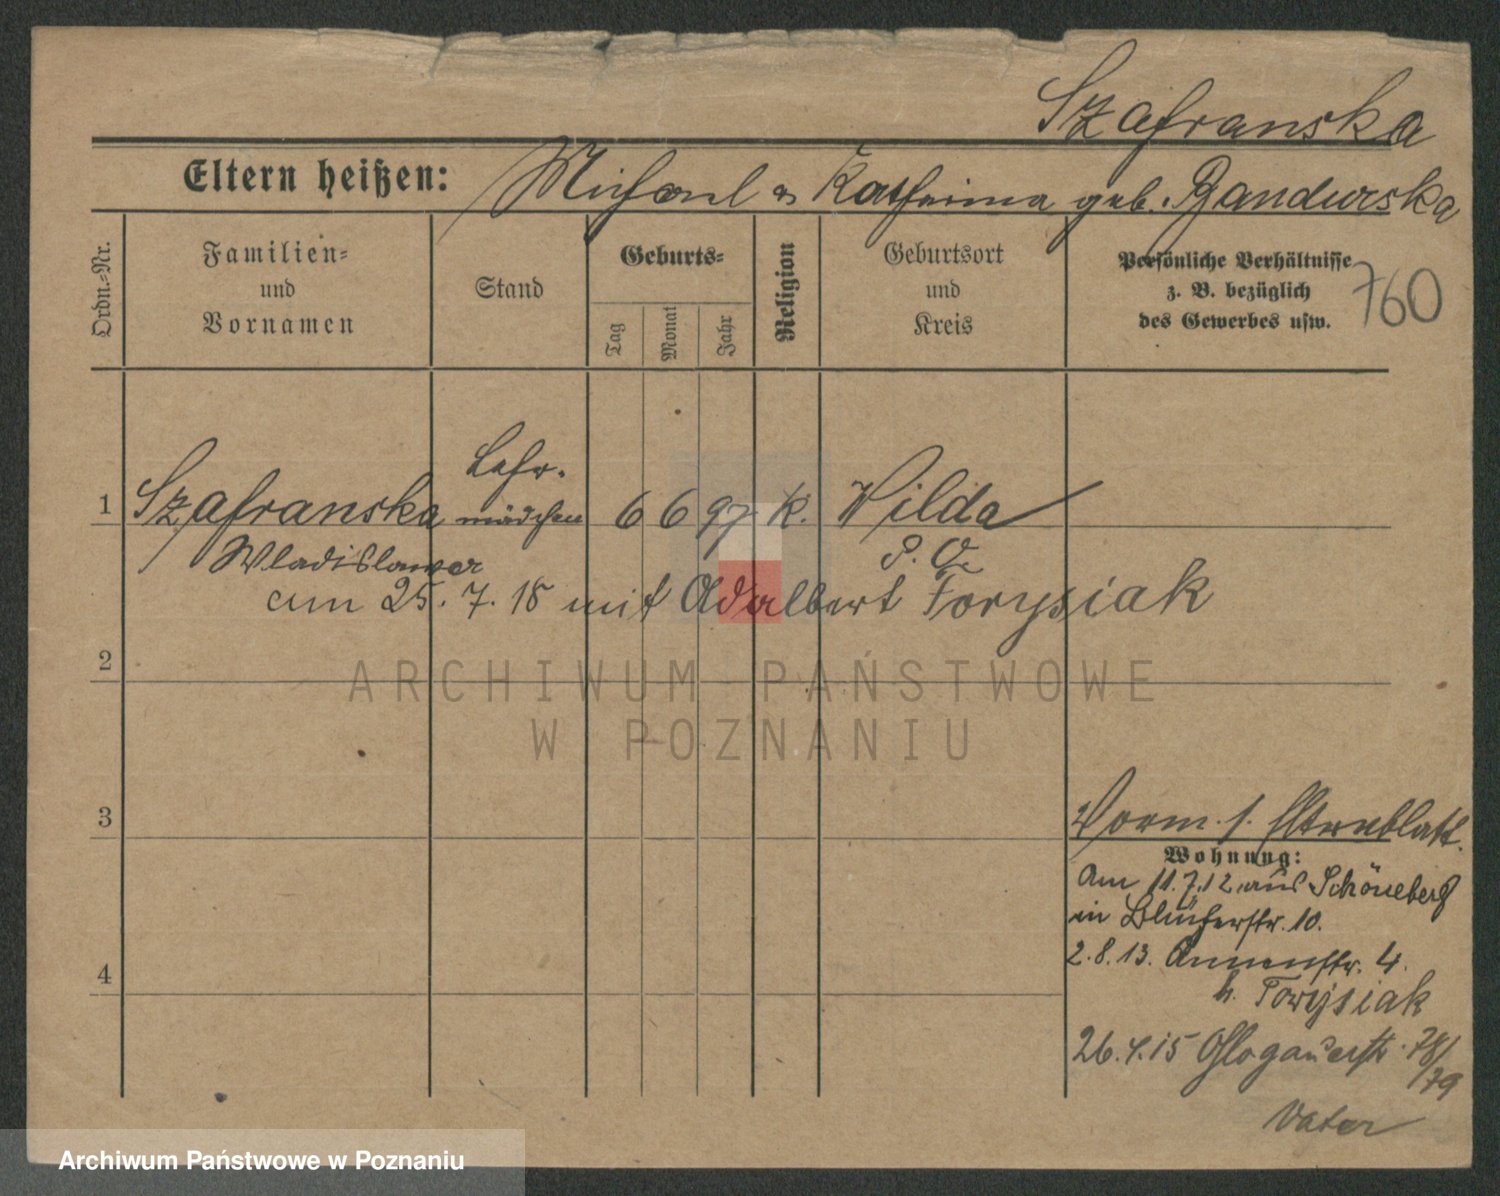 Szafranska
Eltern heißen: Michael u Katharina geb. Bandurska
Ordn.-Nr.
Familien-
und
Vornamen
Stand
Geburts-
Tag
Monat
Jahr
Religion
Geburtsort
und
Kreis
Persönliche Verhältnisse
z. B. bezüglich
des Gewerbes usw.
760
Lehr-
1 Szafranska mädchen 6 6 97 K. Wilda
Wladislawa P. O.
am 25. 7. 18 mit Adalbert Torysiak
2
ARCHIWUM PAŃSTWOWE
W POZNANIU
3
Vorm. s. Elternblatt.
Wohnung:
Am 11.7.12 aus Schöneberg
in Blücherstr. 10.
2.8.13. Annenstr. 4.
4
b. Torysiak
26.4.15 Glogauerstr. 78/
79
Vater
Archiwum Państwowe w Poznaniu